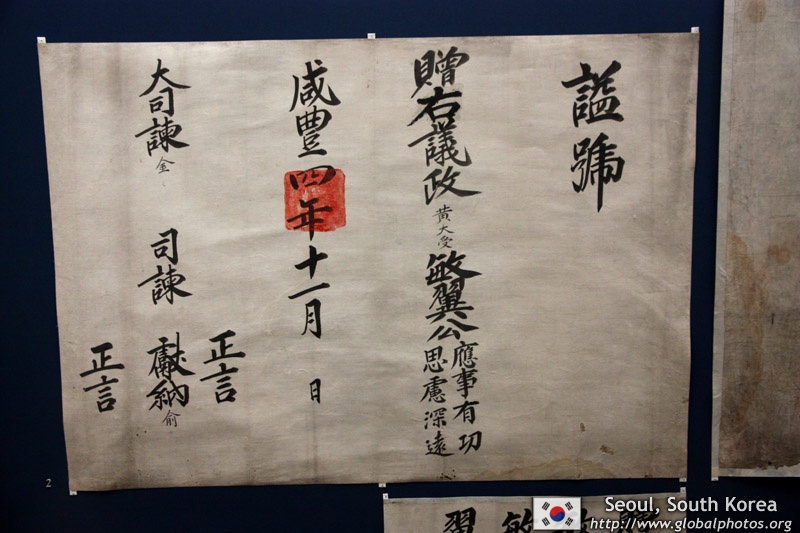 諡號
贈右議政 黃大受 敏翼公 應事有功
思慮深遠
咸豊四年十一月 日
正言
大司諫 金 司諫 獻納 俞
正言
2
Seoul, South Korea
http://www.globalphotos.org